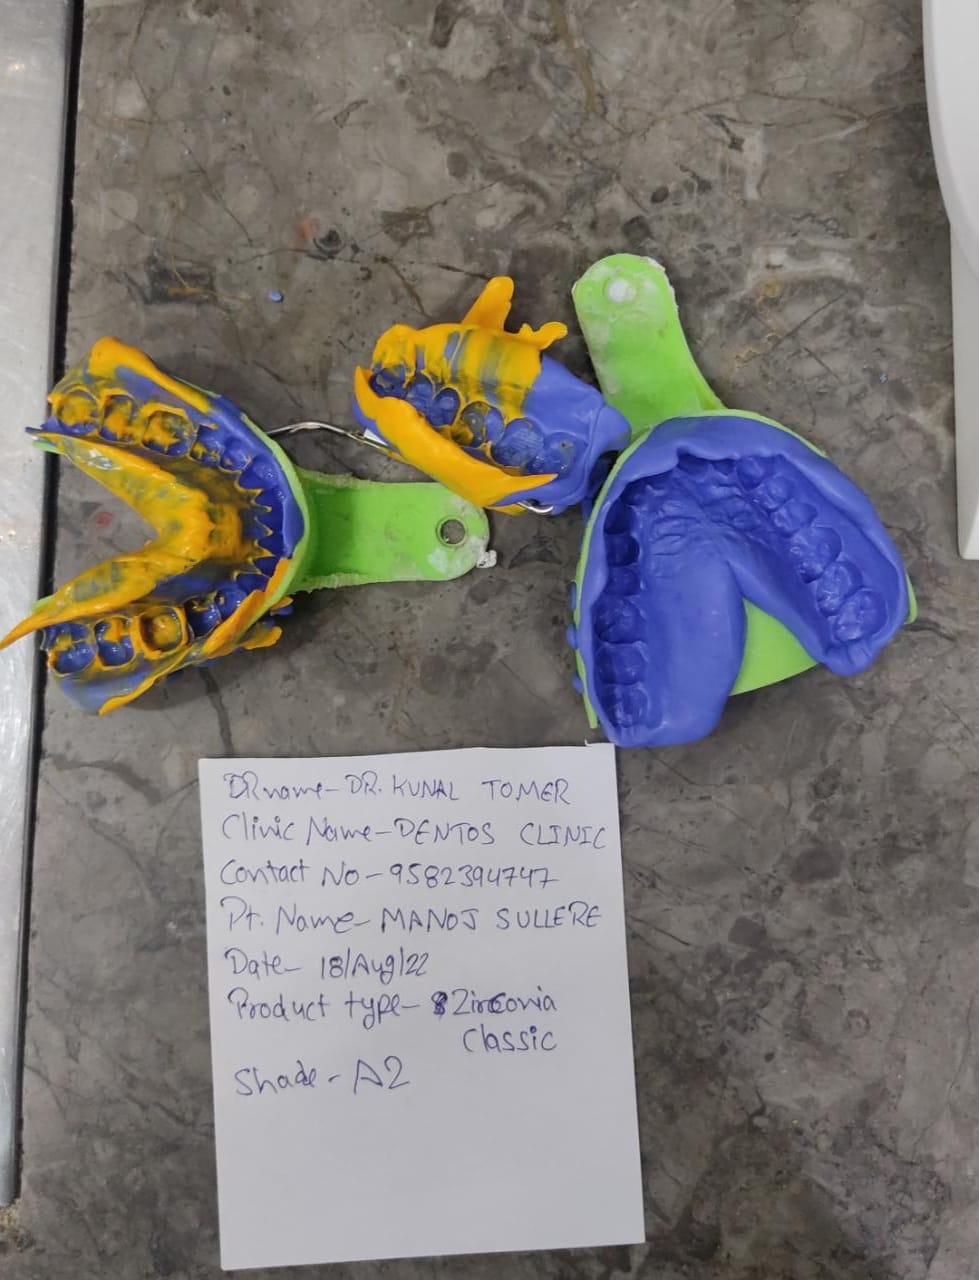 DR name- DR. KUNAL TOMER
Clinic Name- DENTOS CLINIC
Contact No - 9582394747
Pt. Name- MANOJ SULLERE
Date- 18/Aug/22
Product type- Zirconia
Classic
Shade- A2